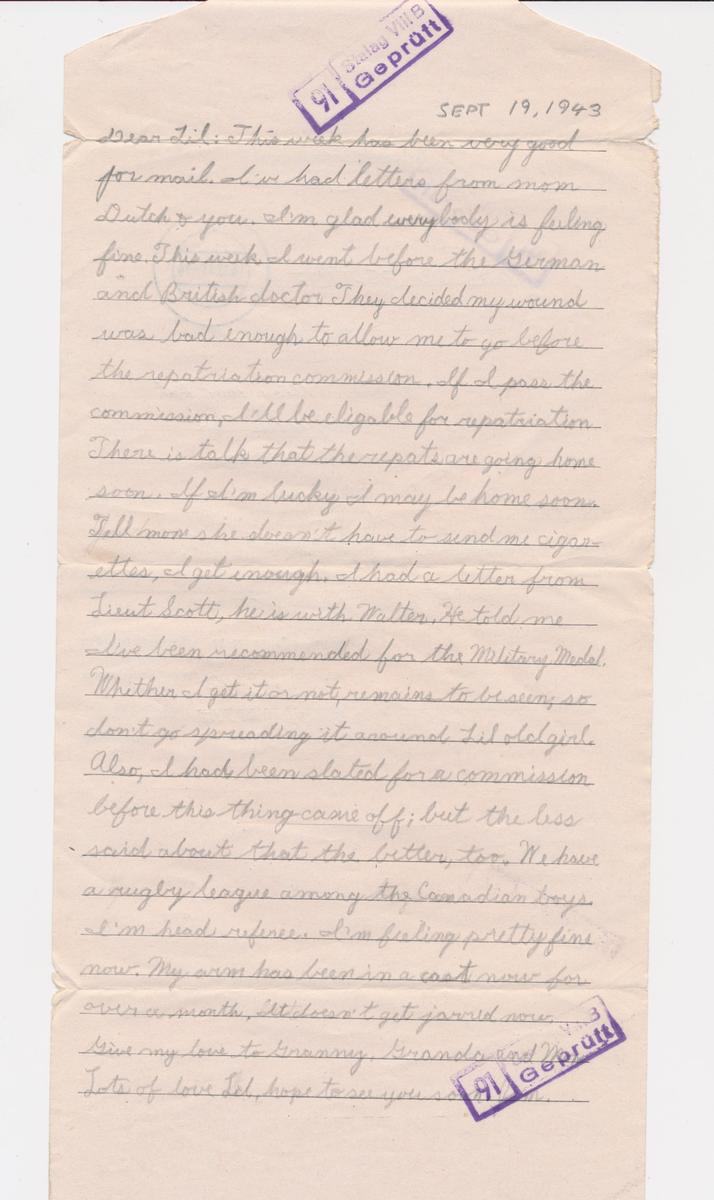 Stalag VIII B
91 Geprüft
SEPT 19, 1943
Dear Lil: This week has been very good
for mail. I've had letters from mom
Dutch & you. I'm glad everybody is feeling
fine. This week I went before the German
and British doctor They decided my wound
was bad enough to allow me to go before
the repatriation commission. If I pass the
commission, I'll be eligable for repatriation
There is talk that the repats are going home
soon. If I'm lucky I may be home soon.
Tell mom she doesn't have to send me cigar-
ettes, I get enough. I had a letter from
Lieut Scott, he is with Walter. He told me
I've been recommended for the Military Medal.
Whither I get it or not, remains to be seen, so
don't go spreading it around Lil old girl.
Also, I had been slated for a commission
before this thing came off; but the less
said about that the bitter, too. We have
a rugby league among the Canadian boys.
I'm head referee. I'm feeling pretty fine
now. My arm has been in a cast now for
over a month. It doesn't get jarred now.
Give my love to Granny, Granda and
Lots of love Lil, hope to see you
VIII B
91 Geprüft